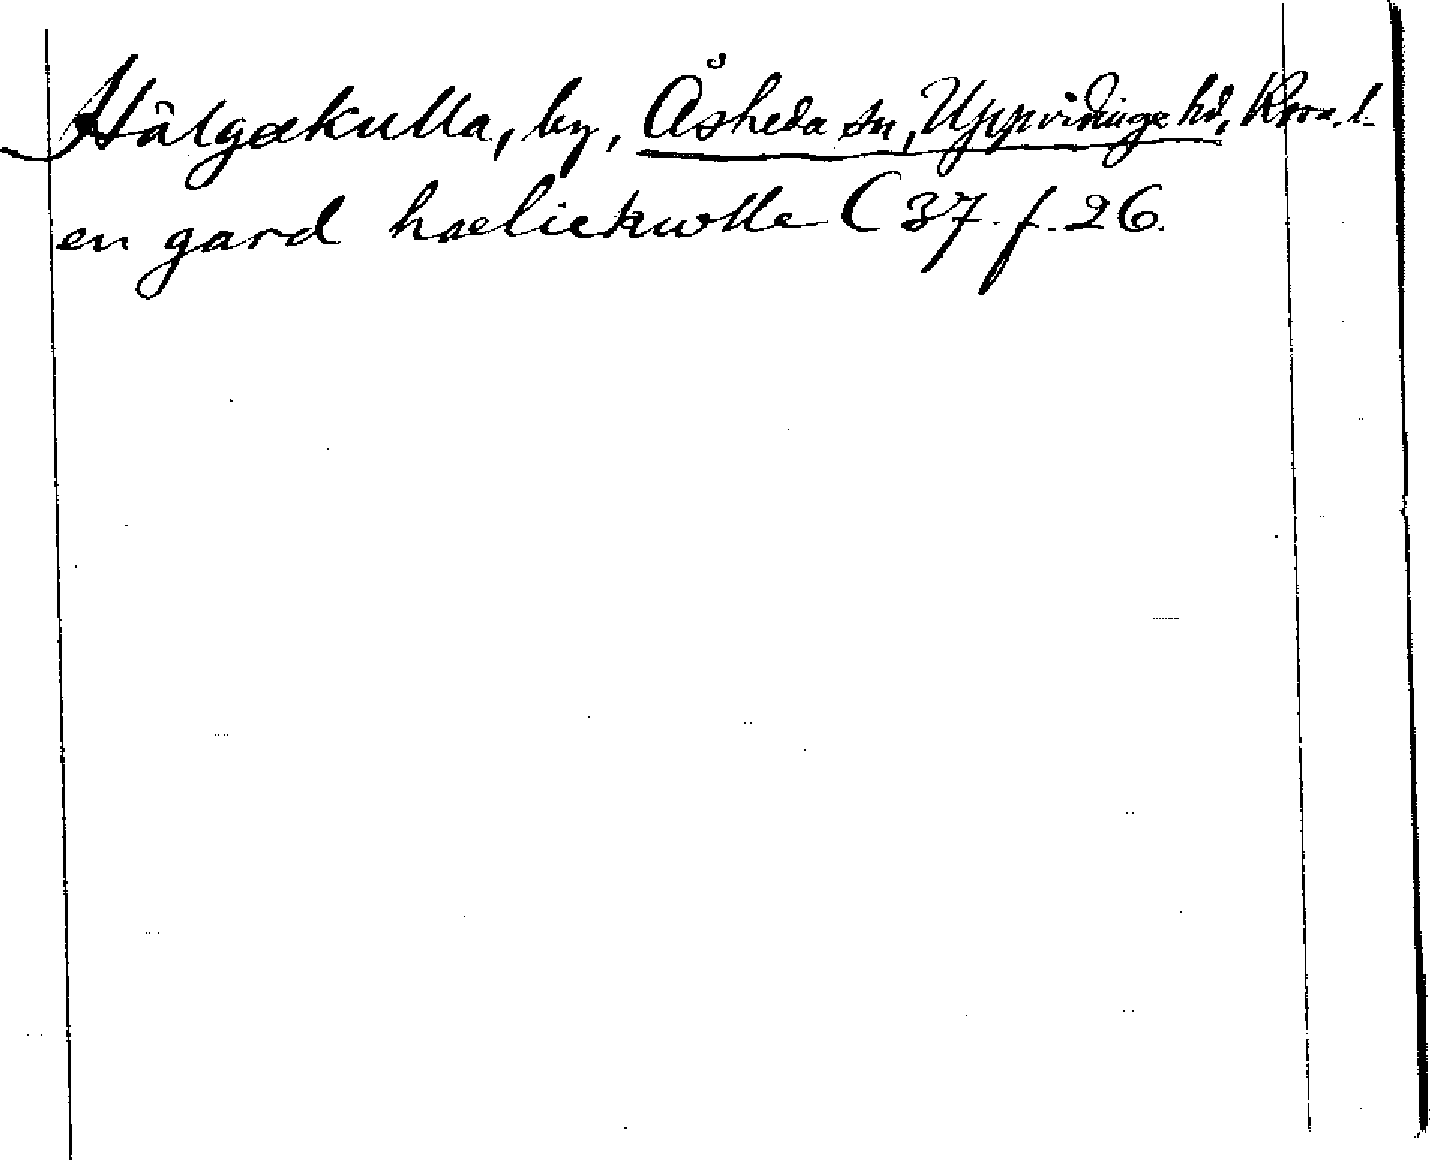 Hälgakulla, by, Åsheda sn, Uppvidinge hd, Kron. l.
en gard haeliekwlle C 37. f. 26.